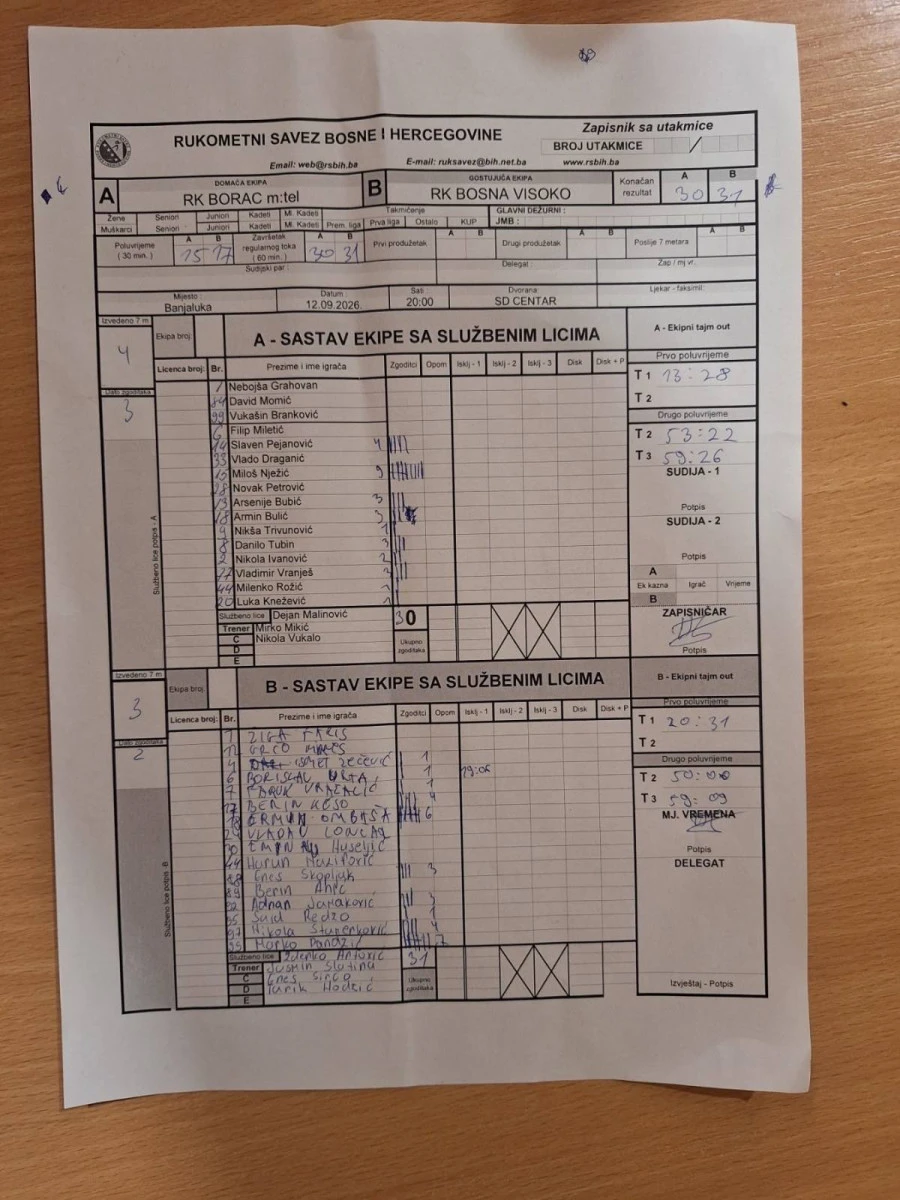 RUKOMETNI SAVEZ BOSNE I HERCEGOVINE
Zapisnik sa utakmice
BROJ UTAKMICE /
Email: web@rsbih.ba E-mail: ruksavez@bih.net.ba www.rsbih.ba
A DOMAĆA EKIPA B GOSTUJUĆA EKIPA Konačan rezultat A B
RK BORAC m:tel RK BOSNA VISOKO 30 31
Žene Seniori Juniori Kadeti Ml. Kadeti Takmičenje GLAVNI DEŽURNI :
Muškarci Seniori Juniori Kadeti Ml. Kadeti Prem. liga Prva liga Ostalo KUP JMB :
Poluvrijeme ( 30 min.) A B 15 17 Završetak regularnog toka (60 min.) A B 30 31 Prvi produžetak A B Drugi produžetak A B Poslije 7 metara A B
Sudijski par : Delegat : Zap / mj vr.
Mjesto : Datum : Sati : Dvorana: Ljekar - faksimil:
Banjaluka 12.09.2026. 20:00 SD CENTAR
Izvedeno 7 m
4
3
Službeno lice potpis - A
Ekipa broj: A - SASTAV EKIPE SA SLUŽBENIM LICIMA
Licenca broj: Br. Prezime i ime igrača Zgoditci Opom Isklj - 1 Isklj - 2 Isklj - 3 Disk Disk + P
1 Nebojša Grahovan
84 David Momić
99 Vukašin Branković
6 Filip Miletić
14 Slaven Pejanović 4
33 Vlado Draganić
15 Miloš Nježić 9
Novak Petrović
13 Arsenije Bubić 3
18 Armin Bulić 3
9 Nikša Trivunović 1
8 Danilo Tubin 3
2 Nikola Ivanović 2
77 Vladimir Vranješ
44 Milenko Rožić
20 Luka Knežević 1
Službeno lice Dejan Malinović 30
Trener Mirko Mikić
C Nikola Vukalo Ukupno zgoditaka
D
E
A - Ekipni tajm out
Prvo poluvrijeme
T 1 13:28
T 2
Drugo poluvrijeme
T 2 53:22
T 3 59:26
SUDIJA - 1
Potpis
SUDIJA - 2
Potpis
A
Ek kazna Igrač Vrijeme
B
ZAPISNIČAR
Potpis
Izvedeno 7 m
3
2
Službeno lice potpis - B
Ekipa broj: B - SASTAV EKIPE SA SLUŽBENIM LICIMA
Licenca broj: Br. Prezime i ime igrača Zgoditci Opom Isklj - 1 Isklj - 2 Isklj - 3 Disk Disk + P
1 ŽIGA FARIS
12 GRCO
4 ISMET ZEČEVIĆ 1
6 BORISLAV 1 19:06
7 FARUK 1
17 BERIN KOSO 4
18 ERMIN OMBAŠA 6
VLADAN LONČAR
30 EMIN Huseljić
44 Harun Nazifović
88 Enes Skopljak 3
89 Berin
92 Adnan 3
95 Said Redžo 1
97 Nikola Stupenković 4
Marko Pandžić 7
Službeno lice Zdenko Antović 31
Trener Jasmin Slatina
C Enes Sirćo Ukupno zgoditaka
D Tarik Hodžić
E
B - Ekipni tajm out
Prvo poluvrijeme
T 1 20:31
T 2
Drugo poluvrijeme
T 2 50:00
T 3 59:09
MJ. VREMENA
Potpis
DELEGAT
Izvještaj - Potpis